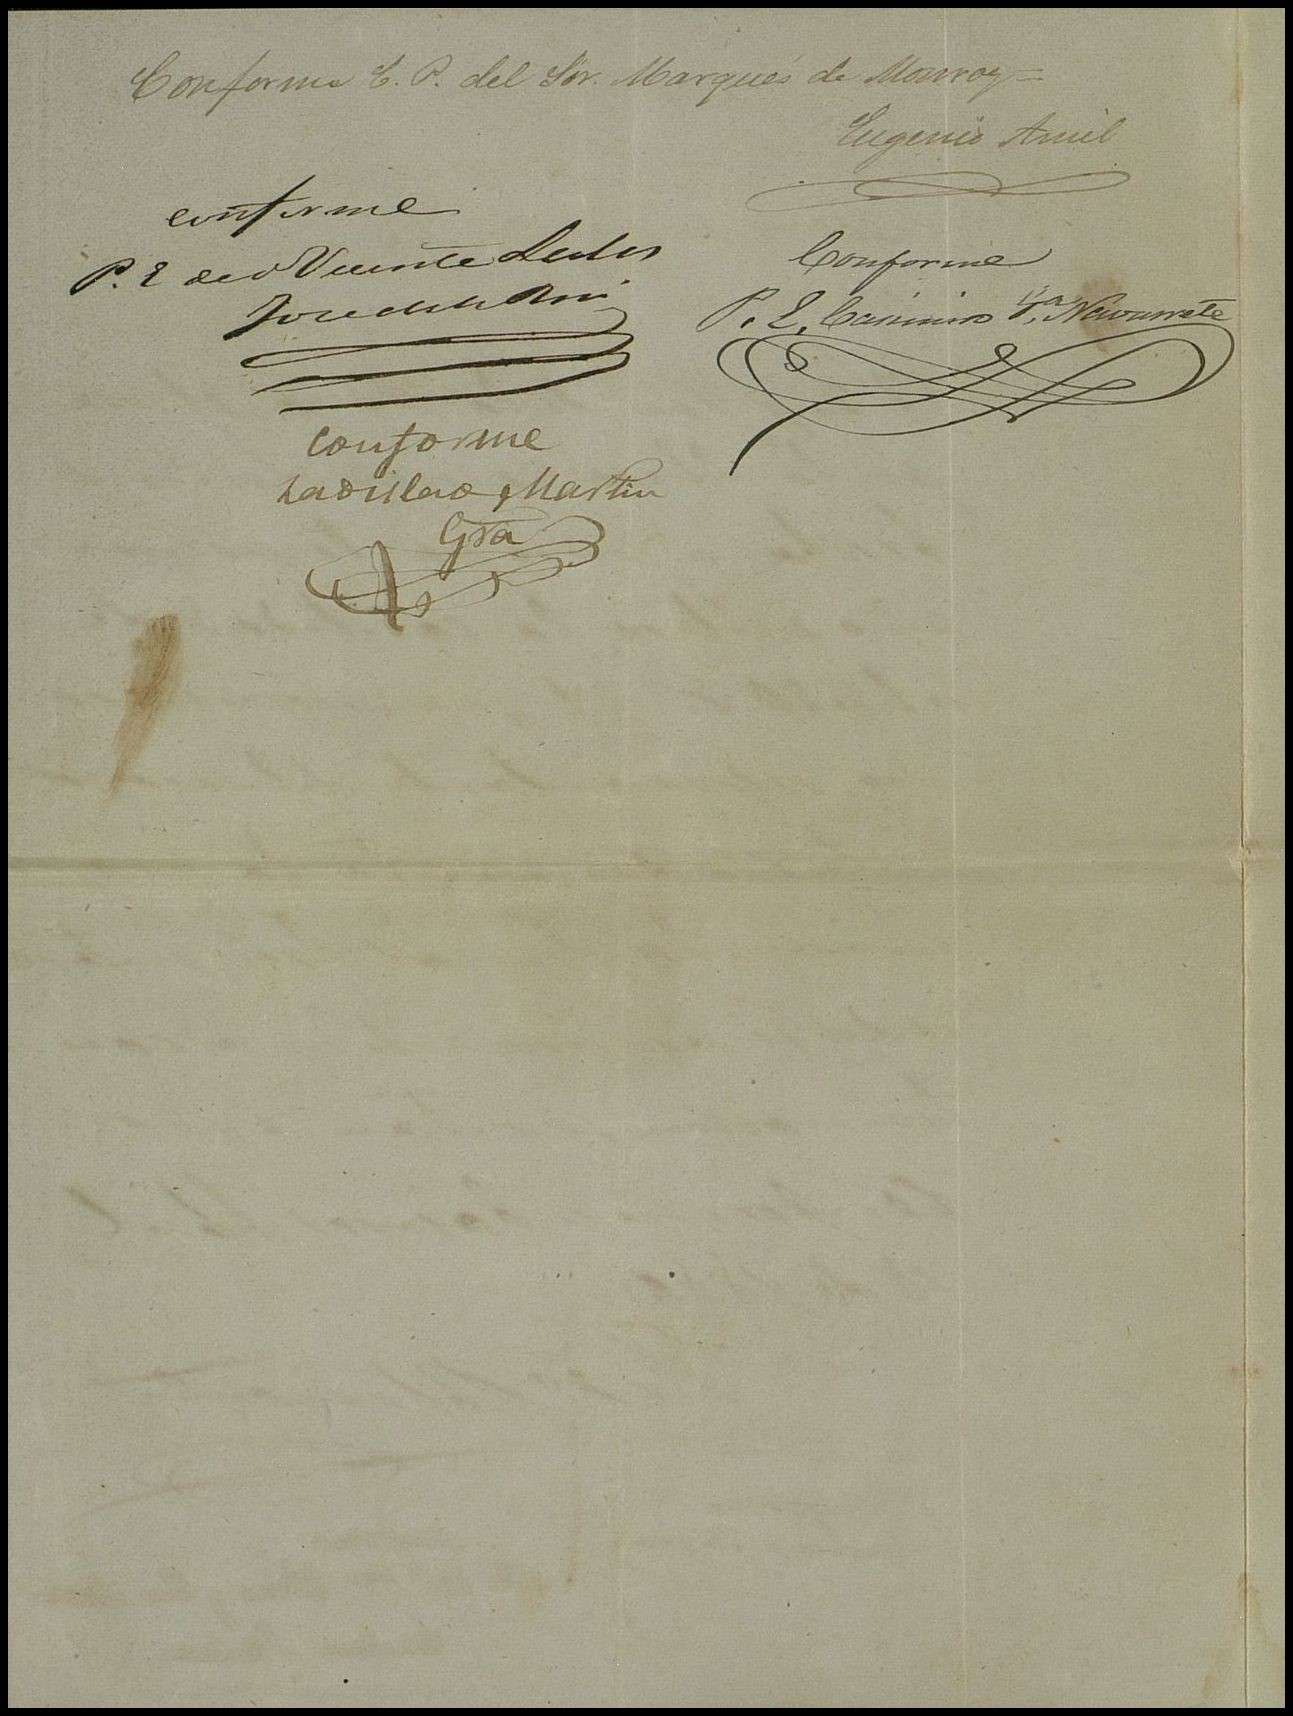 Conforme C. P. del Sor. Marqués de Monroy=
Eugenio Amil
conforme
P. E de d Vicente
Jose de la
Conforme
P. E. Casimiro Navarrete
Conforme
Ladislao Martin
Gra